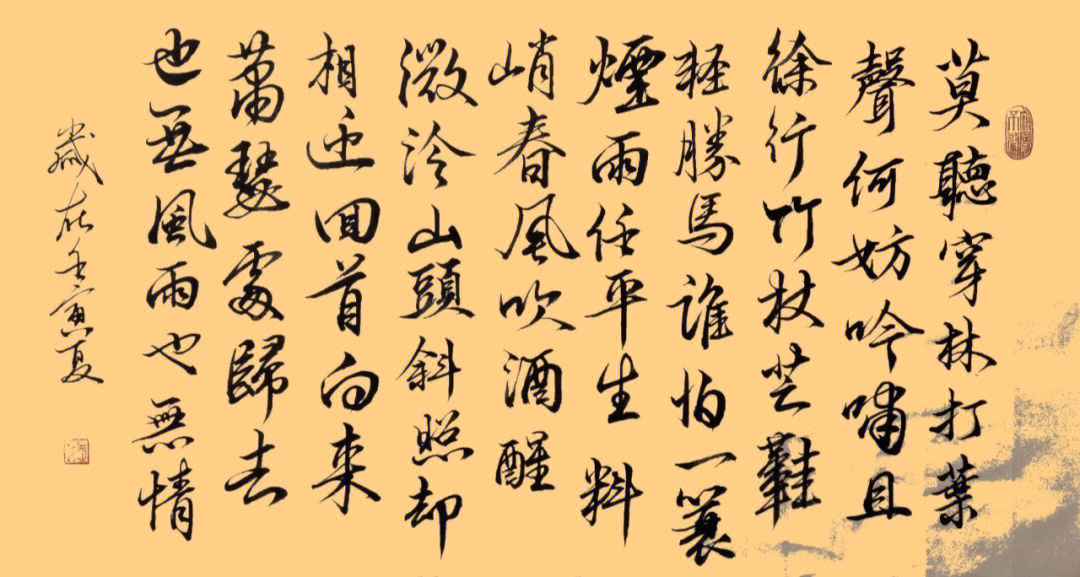 莫聽穿林打葉
聲何妨吟嘯且
徐行竹杖芒鞋
輕勝馬誰怕一蓑
煙雨任平生料
峭春風吹酒醒
微冷山頭斜照却
相迎回首向来
蕭瑟處歸去
也無風雨也無情
歲在壬寅夏